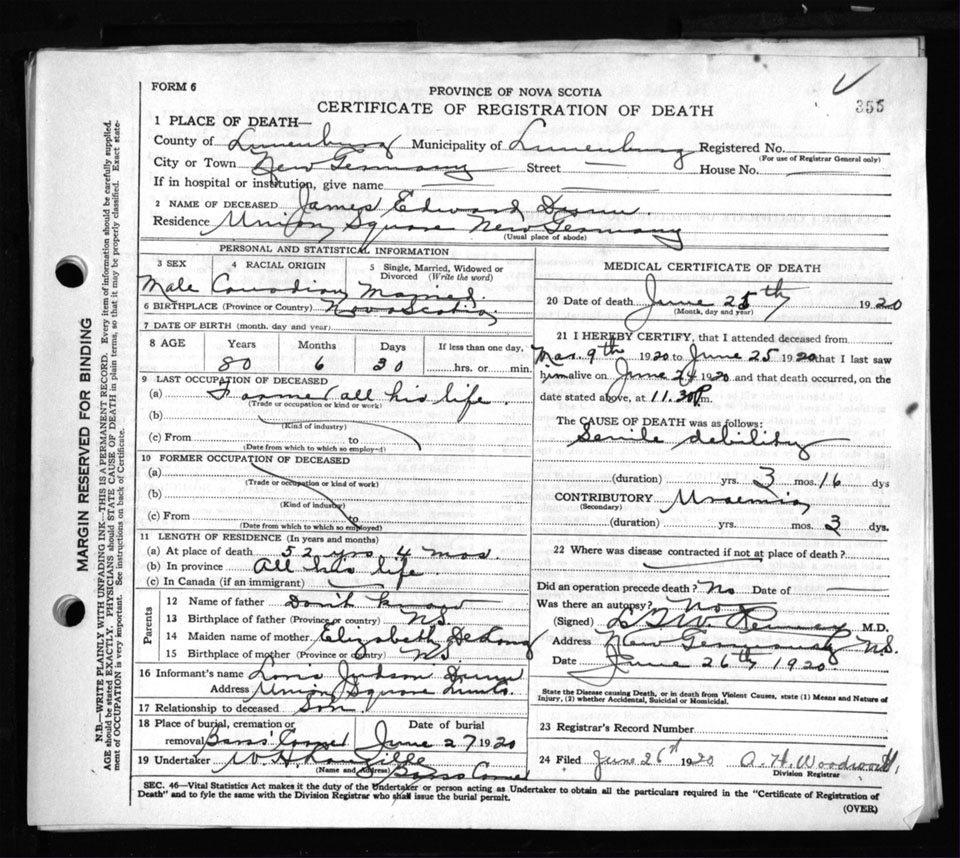 FORM 6
PROVINCE OF NOVA SCOTIA
CERTIFICATE OF REGISTRATION OF DEATH
355
1 PLACE OF DEATH—
County of Lunenburg Municipality of Lunenburg Registered No.
(For use of Registrar General only)
City or Town New Germany Street — House No.
If in hospital or institution, give name
2 NAME OF DECEASED James Edward
Residence Union Square New Germany
(Usual place of abode)
PERSONAL AND STATISTICAL INFORMATION
3 SEX 4 RACIAL ORIGIN 5 Single, Married, Widowed or Divorced (Write the word)
Male Canadian Married
6 BIRTHPLACE (Province or Country) Nova Scotia
7 DATE OF BIRTH (month, day and year)
8 AGE Years Months Days If less than one day,
80 6 30 hrs. or min.
9 LAST OCCUPATION OF DECEASED
(a) Farmer all his life.
(Trade or occupation or kind or work)
(b)
(Kind of industry)
(c) From to
(Date from which to which so employed)
10 FORMER OCCUPATION OF DECEASED
(a)
(Trade or occupation or kind of work)
(b)
(Kind of industry)
(c) From to
(Date from which to which so employed)
11 LENGTH OF RESIDENCE (In years and months)
(a) At place of death 52 yrs, 4 mos
(b) In province All his life
(c) In Canada (if an immigrant)
Parents
12 Name of father Don't know
13 Birthplace of father (Province or country) N.S.
14 Maiden name of mother Elizabeth DeLong
15 Birthplace of mother (Province or country) N.S.
16 Informant's name Judson
Address Union Square
17 Relationship to deceased Son
18 Place of burial, cremation or removal Date of burial
June 27 1920
19 Undertaker W.H.
(Name and Address)
MEDICAL CERTIFICATE OF DEATH
20 Date of death June 25th 1920
(Month, day and year)
21 I HEREBY CERTIFY, that I attended deceased from
Mar. 9th 1920 to June 25 1920 that I last saw
him alive on June 24 1920 and that death occurred, on the
date stated above, at 11.30 P.m.
The CAUSE OF DEATH was as follows:
Senile debility
(duration) yrs. 3 mos. 16 dys
CONTRIBUTORY Uraemia
(Secondary)
(duration) yrs. mos. 3 dys.
22 Where was disease contracted if not at place of death?
Did an operation precede death? No Date of —
Was there an autopsy? No
(Signed) M.D.
Address New Germany N.S.
Date June 26th 1920.
State the Disease causing Death, or in death from Violent Causes, state (1) Means and Nature of
Injury, (2) whether Accidental, Suicidal or Homicidal.
23 Registrar's Record Number
24 Filed June 26th 1920 A. H.
Division Registrar
SEC. 46—Vital Statistics Act makes it the duty of the Undertaker or person acting as Undertaker to obtain all the particulars required in the "Certificate of Registration of
Death" and to fyle the same with the Division Registrar who shall issue the burial permit.
(OVER)
MARGIN RESERVED FOR BINDING
N.B.—WRITE PLAINLY WITH UNFADING INK—THIS IS A PERMANENT RECORD. Every item of information should be carefully supplied.
AGE should be stated EXACTLY. PHYSICIANS should STATE CAUSE OF DEATH in plain terms, so that it may be properly classified. Exact state-
ment of OCCUPATION is very important. See instructions on back of Certificate.